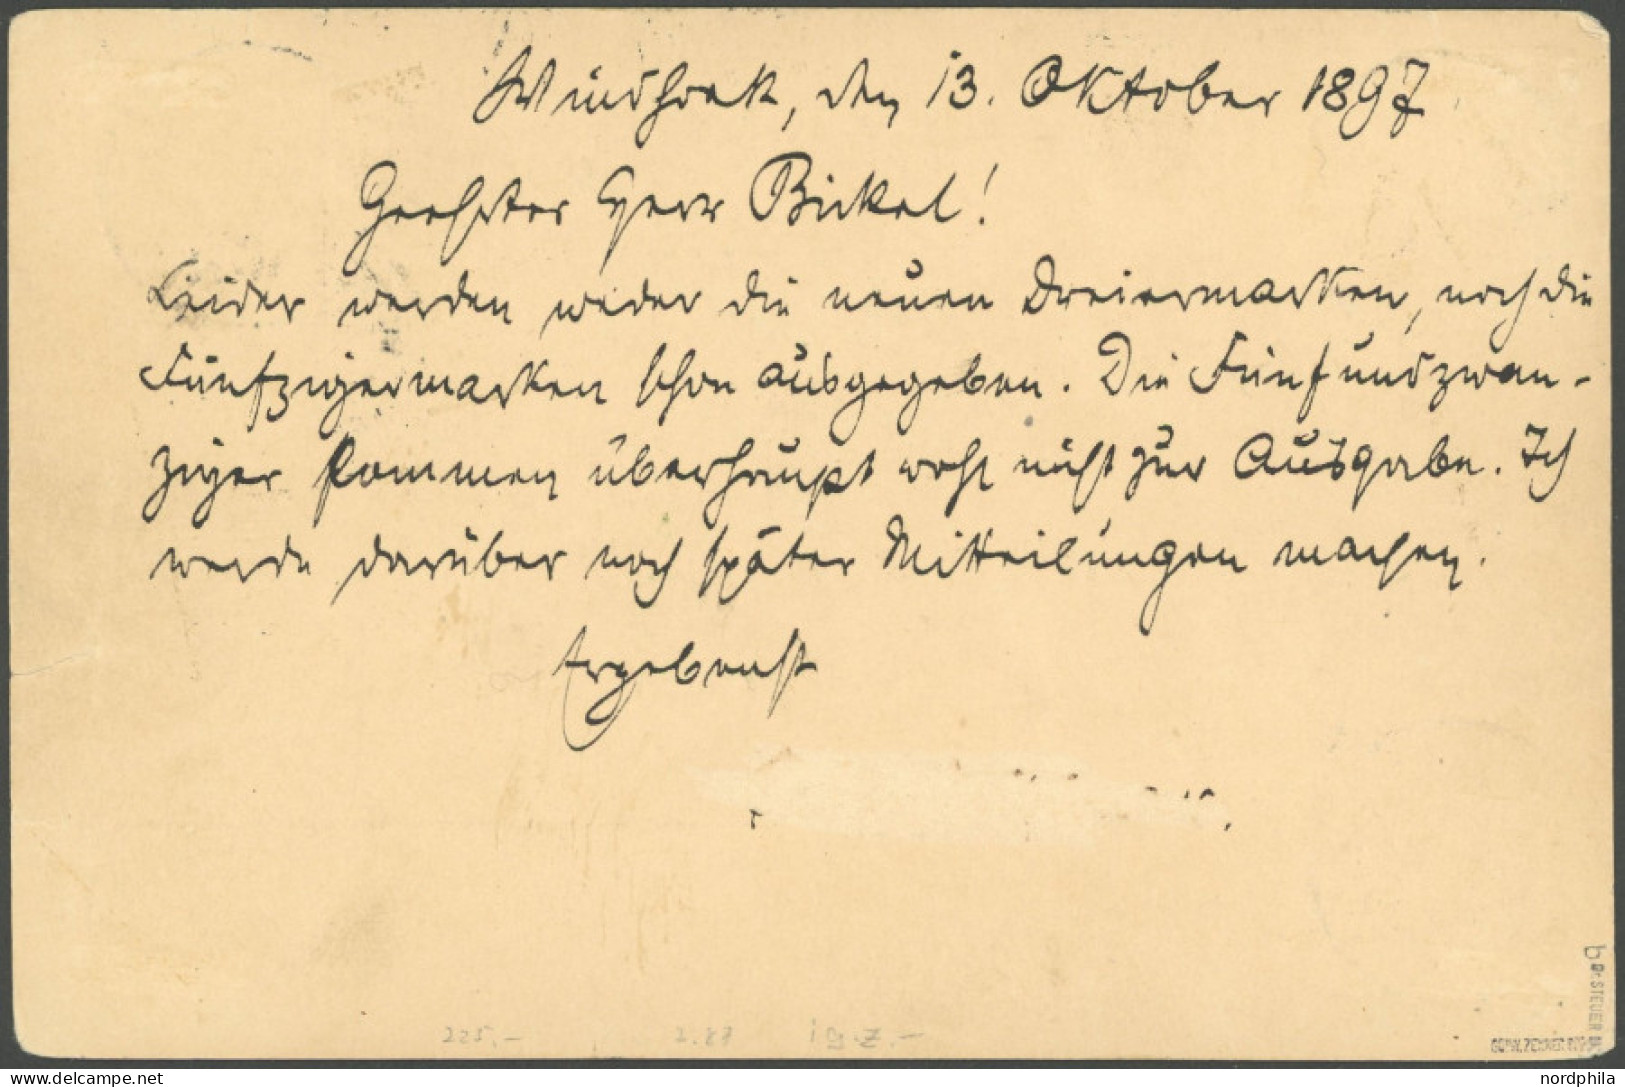 Windhoek, den 13. Oktober 1897
Geehrter Herr Bickel!
Leider werden weder die neuen Dreiermarken, noch die
Fünfzigermarken schon ausgegeben. Die Fünfundzwan-
ziger kommen überhaupt wohl nicht zur Ausgabe. Ich
werde darüber noch später Mitteilungen machen.
Ergebenst
225.-
2.87
Dr. STEUER
delcampe.net
nordphila